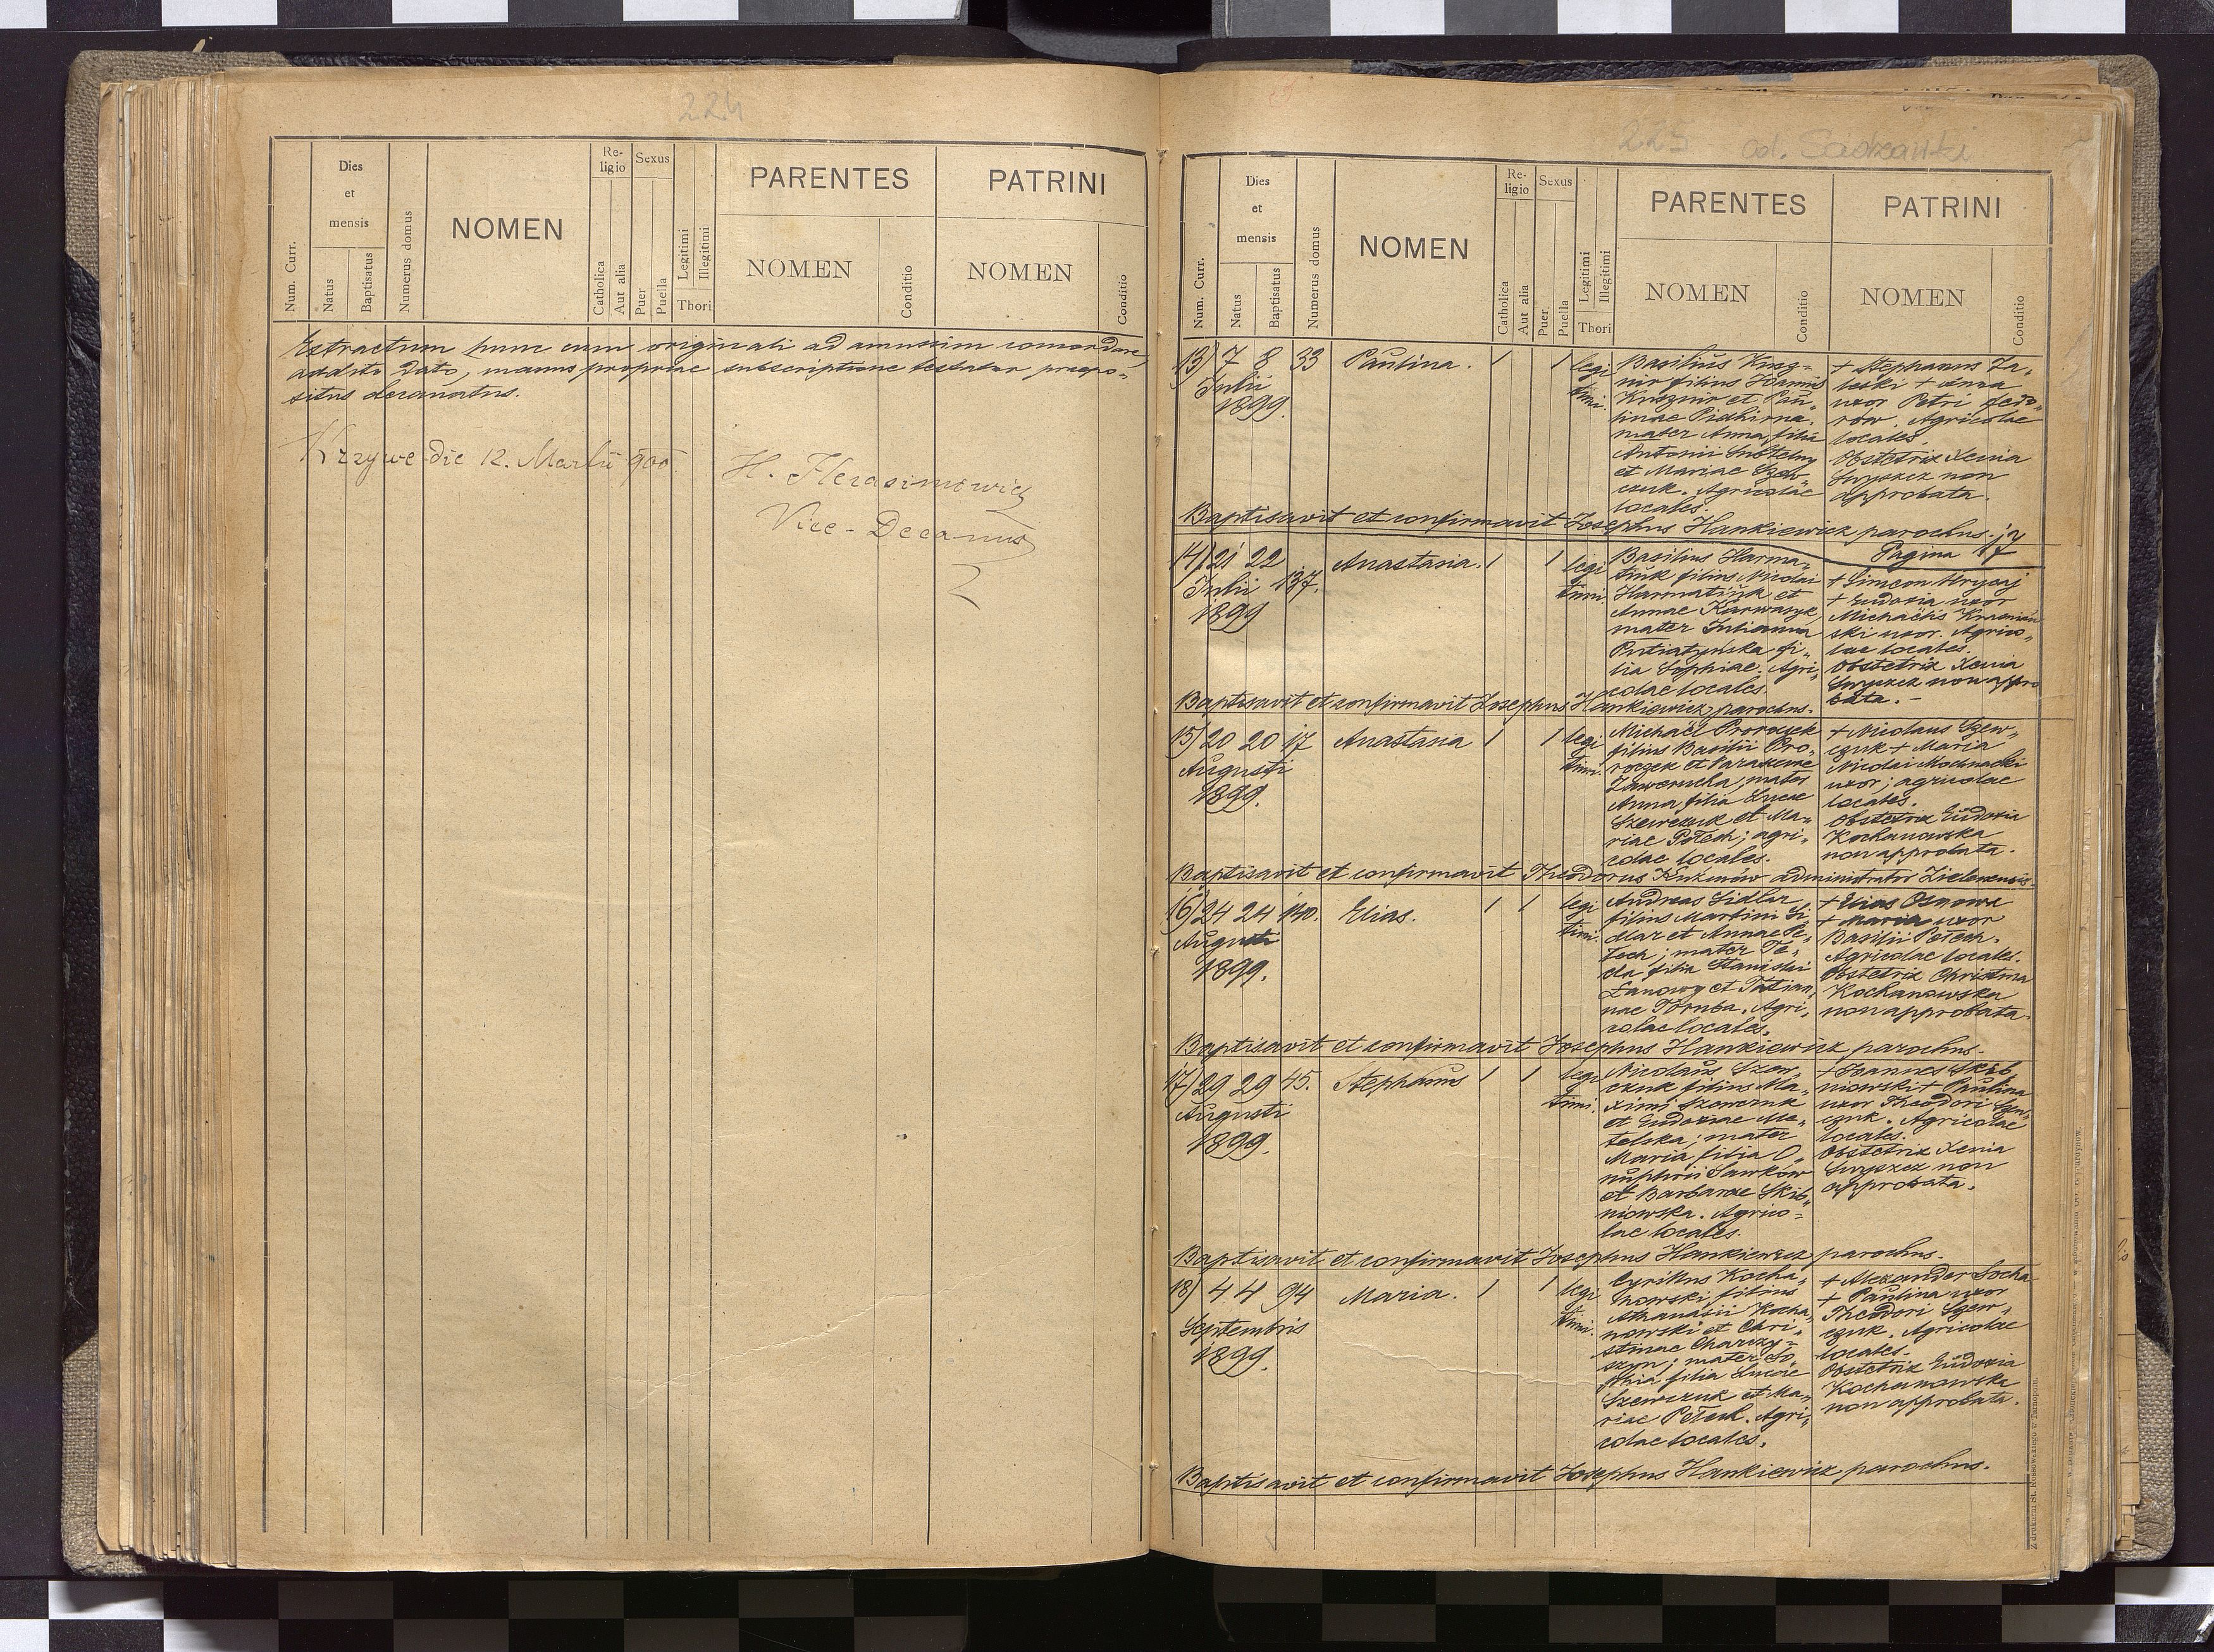 224
Num. Curr.
Dies
et
mensis
Natus
Baptisatus
Numerus domus
NOMEN
Re-
ligio
Catholica
Aut alia
Sexus
Puer
Puella
Legitimi
Illegitimi
Thori
PARENTES
NOMEN
Conditio
PATRINI
NOMEN
Conditio
Extractum hunc cum originali ad amussim concordare,
addito dato, manus propriae subscriptione testatur praepo-
situs decanatus.
Krzywe die 12. Martii 900.
H. Herasimowicz
Vice-Decanus
225 ad. Sadzawki
Num. Curr.
Dies
et
mensis
Natus
Baptisatus
Numerus domus
NOMEN
Re-
ligio
Catholica
Aut alia
Sexus
Puer.
Puella
Legitimi
Illegitimi
Thori
PARENTES
NOMEN
Conditio
PATRINI
NOMEN
Conditio
13) 7 8 33 Paulina. 1 1 legi
timi.
Julii
1899.
Basilius Kusz-
nir filius Ioannis
Kusznir et Pau-
linae Pidhirna.
mater Anna, filia
Antonii
et Mariae Szew-
czuk. Agricolae
locales.
+ Stephanus Za-
leski + Anna
uxor Petri Fedo-
row. Agricolae
locales.
Obstetrix Xenia
non
approbata.
Baptisavit et confirmavit Josephus Hankiewicz parochus.
Pagina 17
14) 21 22 137. Anastasia. 1 1 legi
timi.
Julii
1899
Basilius Harma-
tiuk filius Nicolai
Harmatiuk et
Annae
mater Julianna
Putiatynska fi-
lia Sophiae. Agri-
colae locales.
+ Simeon Hrycaj
+ Eudoxia uxor
Michaelis
ski uxor. Agrico-
lae locales.
Obstetrix Xenia
non appro
bata.-
Baptisavit et confirmavit Josephus Hankiewicz parochus.
15) 20 20 17 Anastasia 1 1 legi
timi.
Augusti
1899.
Michael Proroczek
filius Basilii Pro-
roczek et Parasceve
Zawerucha, mater
Anna, filia Lucae
Szewczuk et Ma-
riae Petech; agri-
colae locales.
+ Nicolaus Szew-
czuk + Maria
Nicolai Mochnacki
uxor; agricolae
locales.
Obstetrix Eudoxia
Kochanowska
non approbata.
Baptisavit et confirmavit Theodorus Kuzmów administrator
16) 24 24 140. Elias. 1 1 legi
timi.
Augusti
1899.
Andreas Sidlar
filius Martini Si-
dlar et Annae Pe-
tech; mater Te-
cla filia Stanislai
Łanowy et Tatian-
nae Agri-
colae locales.
+ Elias
+ Maria uxor
Basilii Petech.
Agricolae locales.
Obstetrix Christina
Kochanowska
non approbata.
Baptisavit et confirmavit Josephus Hankiewicz parochus.
17) 29 29 45. Stephanus 1 1 legi
timi.
Augusti
1899.
Nicolaus Szew-
czuk filius Ma-
ximi Szewczuk
et Eudoxiae Me-
telska; mater
Maria filia O-
nuphrii Sawków
et Barbarae Skib-
niowska. Agrico-
lae locales.
+ Ioannes Skib-
niowski + Paulina
uxor Theodori Szew-
czuk. Agricolae
locales.
Obstetrix Xenia
non
approbata.
Baptisavit et confirmavit Josephus Hankiewicz parochus.
18) 4 4 94 Maria. 1 1 legi
timi.
Septembris
1899.
Cyrillus Kocha-
nowski filius
Athanasii Kocha-
nowski et Chri-
stinae Charczy-
szyn; mater So-
phia filia Lucae
Szewczuk et Ma-
riae Petech. Agri-
colae locales.
+ Alexander Socha
+ Paulina uxor
Theodori Szew-
czuk. Agricolae
locales.
Obstetrix Eudoxia
Kochanowska
non approbata.
Baptisavit et confirmavit Josephus Hankiewicz parochus.
Z drukarni St. Kossowskiego w Tarnopolu.